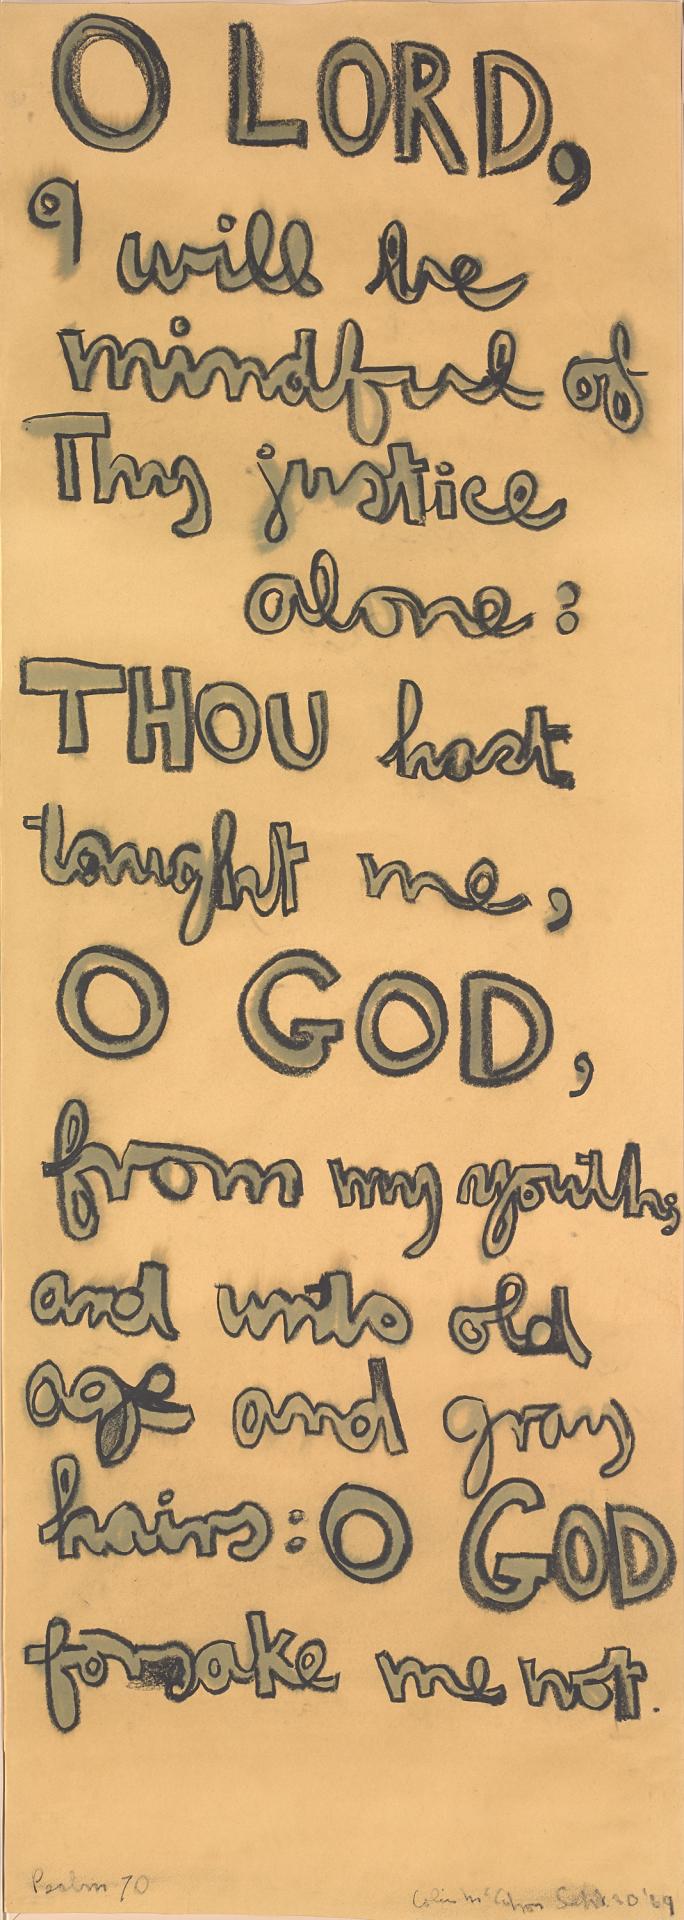 O LORD,
I will be
mindful of
Thy justice
alone:
THOU hast
taught me,
O GOD,
from my youth;
and unto old
age and gray
hairs: O GOD
forsake me not.
Psalm 70
Colin McCahon Sept. 30 '69